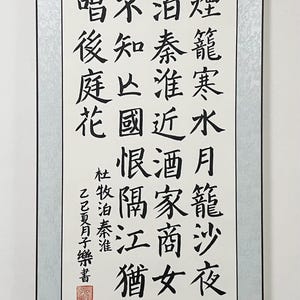 煙籠寒水月籠沙夜
泊秦淮近酒家商女
不知亾國恨隔江猶
唱後庭花
杜牧泊秦淮
乙巳夏月子樂書